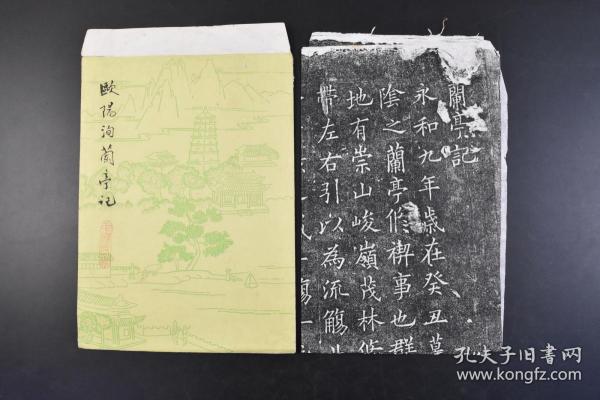 歐陽詢蘭亭記
蘭亭記
永和九年歲在癸丑暮
陰之蘭亭修禊事也群
地有崇山峻嶺茂林修
帶左右引以為流觴
觴一
孔夫子旧书网
www.kongfz.com